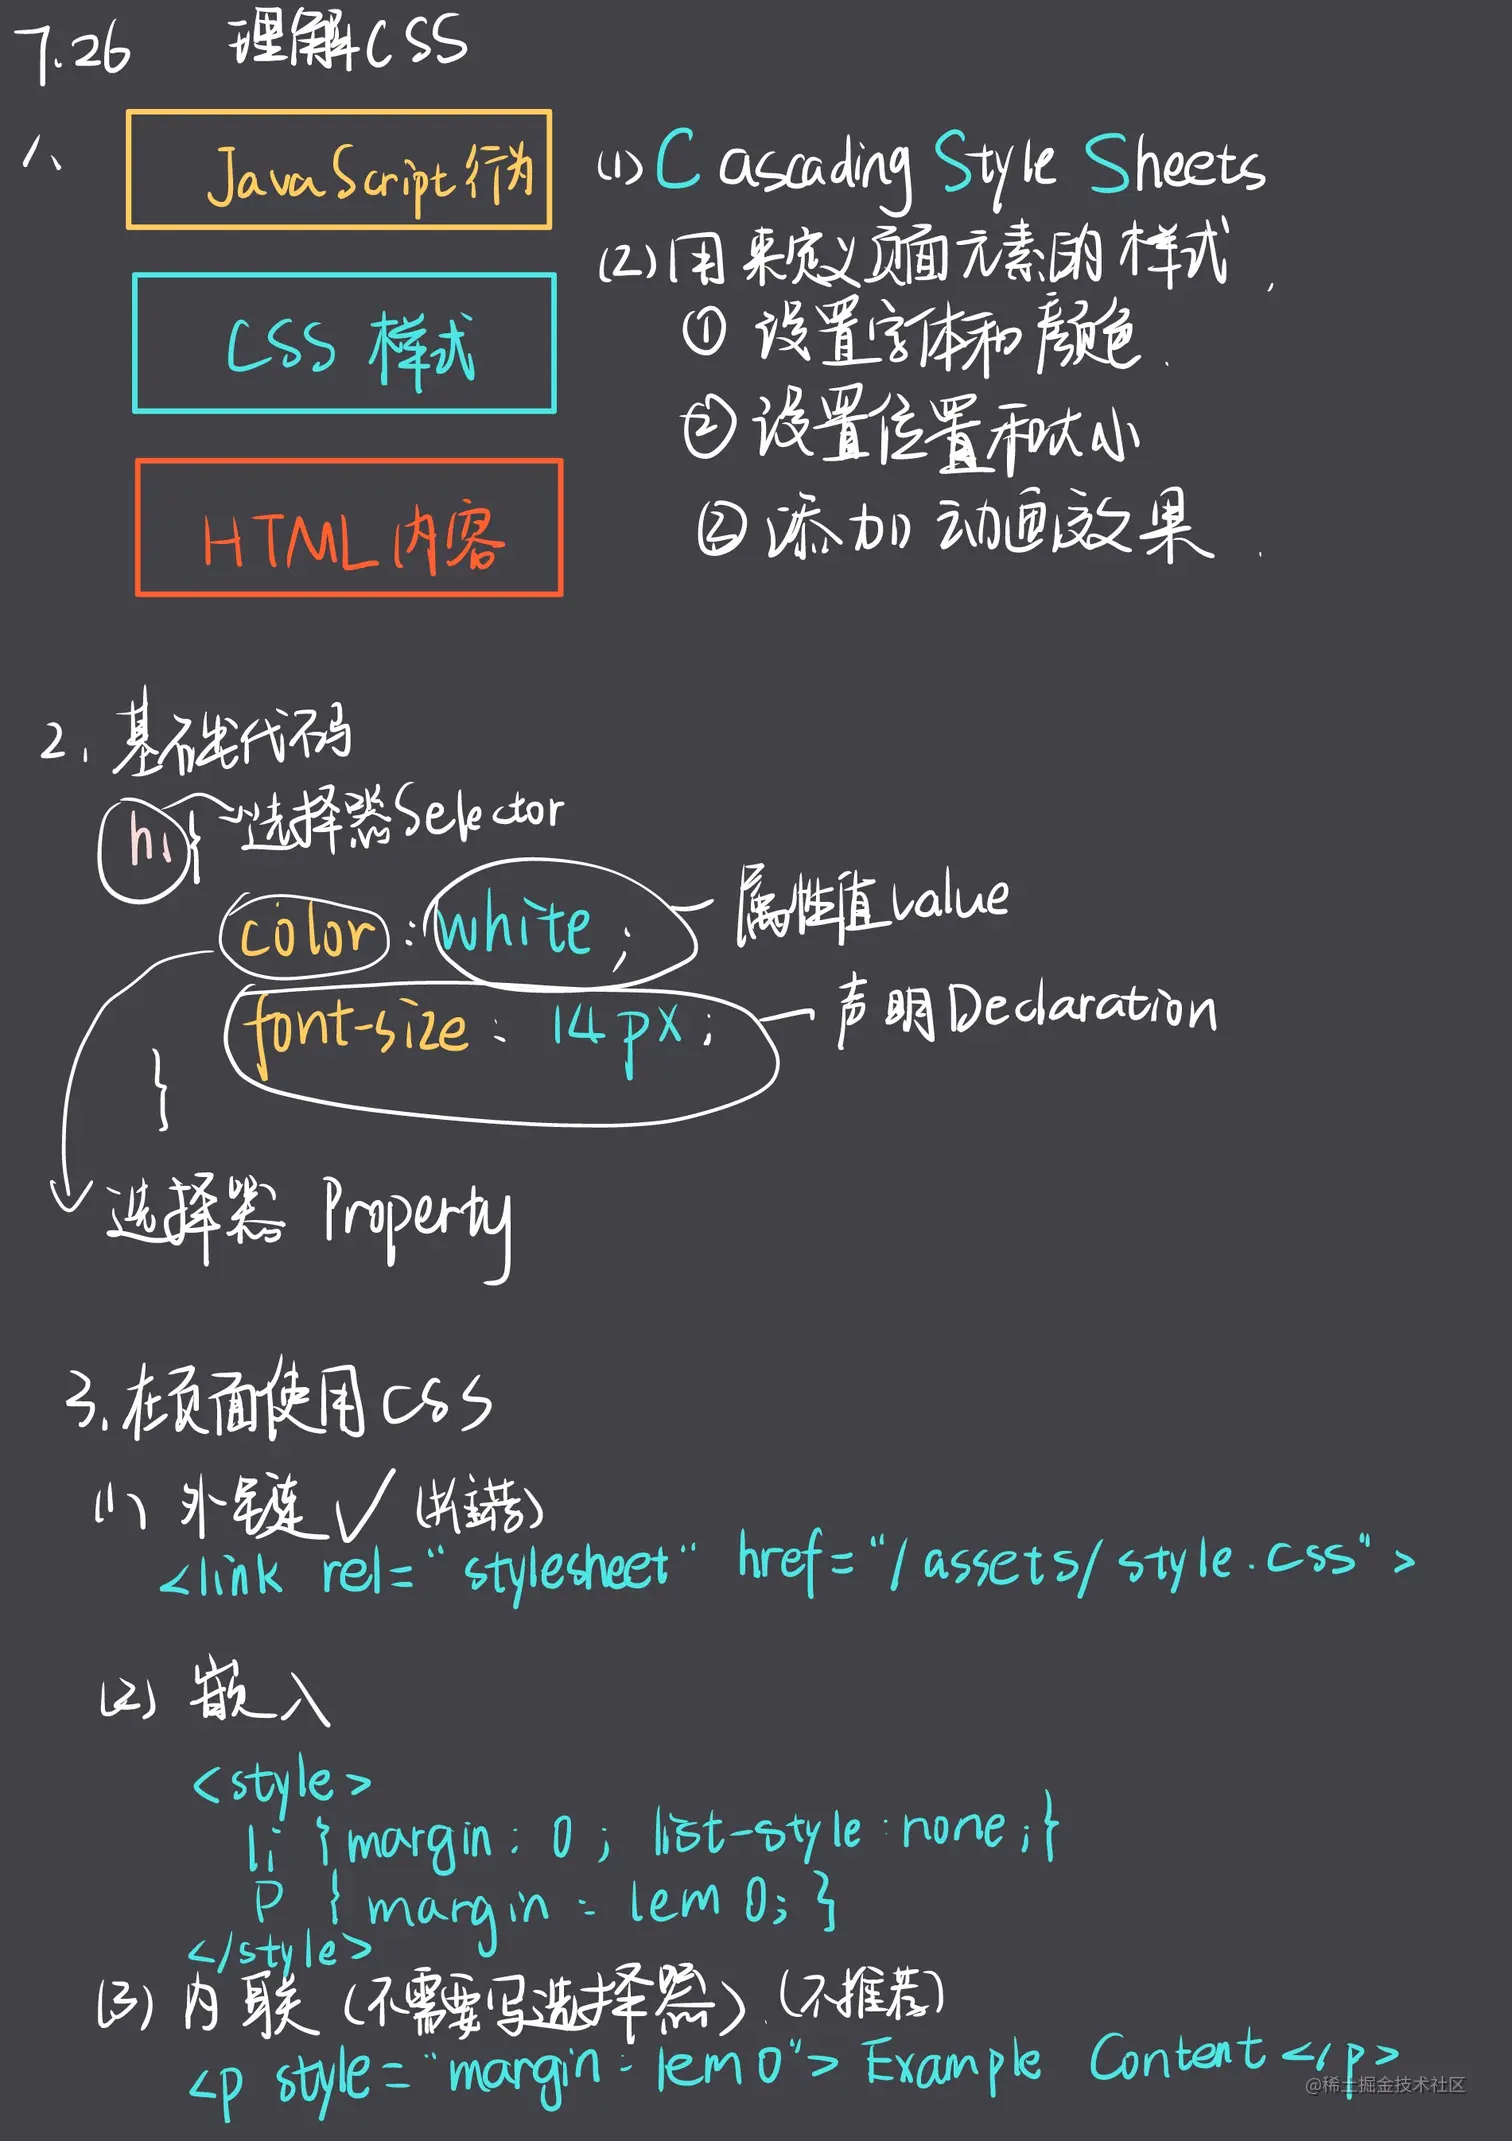 7.26 理解CSS
1、
JavaScript行为
CSS 样式
HTML内容
(1) Cascading Style Sheets
(2) 用来定义页面元素的样式.
① 设置字体和颜色.
② 设置位置和大小
③ 添加动画效果.
2. 基础代码
h1{ 选择器Selector
color:white; 属性值value
font-size: 14px; 声明Declaration
}
选择器 Property
3.在页面使用CSS
(1) 外链 ✓ (推荐)
<link rel="stylesheet" href="/assets/style.css">
(2) 嵌入
<style>
li {margin: 0; list-style:none;}
p {margin: 1em 0;}
</style>
(3) 内联 (不需要写选择器). (不推荐)
<p style="margin:1em 0">Example Content</p>
@稀土掘金技术社区